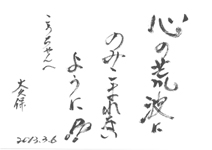 心の荒波に
のみこまれない
ように
こうちゃんへ
大久保
2013.3.6